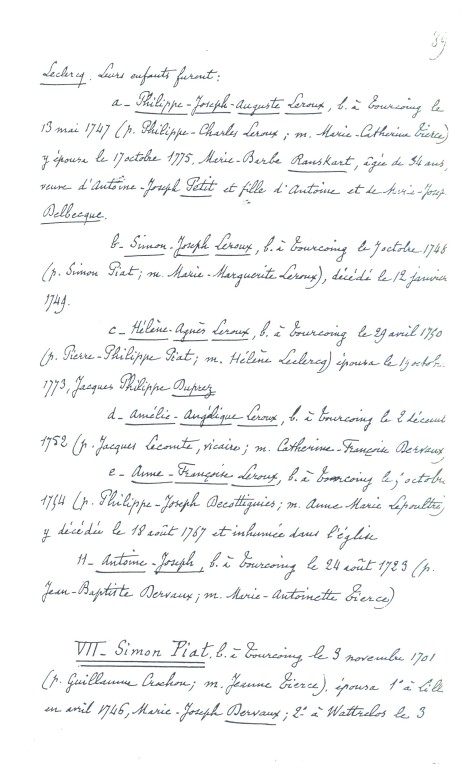 39
Leclercq. Leurs enfants furent:
a- Philippe-Joseph-Auguste Leroux, b. à Tourcoing le
13 mai 1747 (p. Philippe-Charles Leroux; m. Marie-Catherine Tierce)
y épousa le 17 octobre 1775, Marie-Barbe Ranskart, âgée de 34 ans,
veuve d'Antoine-Joseph Petit et fille d'Antoine et de Marie-Josep
Delbecque.
b- Simon-Joseph Leroux, b. à Tourcoing le 7 octobre 1748
(p. Simon Piat; m. Marie-Marguerite Leroux), décédé le 12 janvier
1749.
c- Hélène-Agnès Leroux, b. à Tourcoing le 29 avril 1750
(p. Pierre-Philippe Piat; m. Hélène Leclercq) épousa le 19 octobr
1773, Jacques Philippe Duprez
d- Amélie-Angélique Leroux, b. à Tourcoing le 2 décem
1752 (p. Jacques Lecomte, vicaire; m. Catherine-Françoise Dervaux
e- Anne-Françoise Leroux, b. à Tourcoing le octobre
1754 (p. Philippe-Joseph Decottignies; m. Anne-Marie Lepoultre)
y décédée le 18 août 1767 et inhumée dans l'église
H- Antoine-Joseph, b. à Tourcoing le 24 août 1723 (p.
Jean-Baptiste Dervaux; m. Marie-Antoinette Tierce)
VII- Simon Piat, b. à Tourcoing le 3 novembre 1701
(p. Guillaume Crachou; m. Jeanne Tierce), épousa 1° à Lille
en avril 1746, Marie-Joseph Dervaux; 2° à Wattrelos le 3